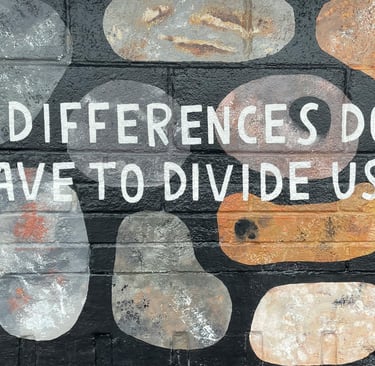 DIFFERENCES DO
AVE TO DIVIDE US